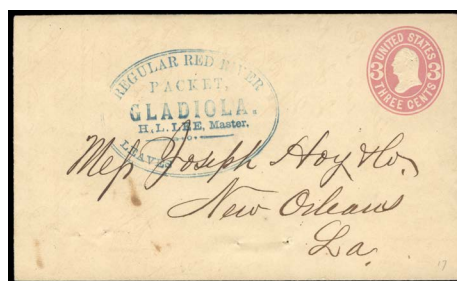 REGULAR RED RIVER
PACKET,
GLADIOLA.
H. L. LEE, Master.
LEAVES
UNITED STATES
3 3
THREE CENTS
Mess Joseph Hoy & Co.
New Orleans
La.
17